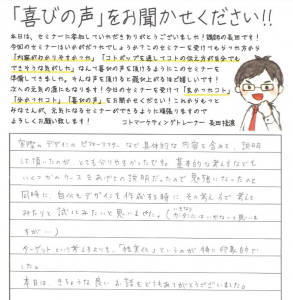 「喜びの声」をお聞かせください!!
本日は、セミナーに参加していただきありがとうございました!講師の長原です!
今回のセミナーはいかがだったでしょうか?このセミナーを受けてもらった方から
「内容がわかりやすかった」「コトポップを通してコトの伝え方が自分でも
できそうな気がした」なんて喜びの声を頂けるようにこのセミナーを
準備してきました。そんな声を頂けると飛び上がるほど嬉しいです!
次への元気の源にもなります!今日のセミナーを受けて「良かったコト」
「分かったコト」「喜びの声」をお聞かせください!これからもっと
みなさんが、元気になるセミナーができるよう頑張りますので
よろしくお願い致します!
コトマーケティングトレーナー
実際のデザインのビフォーアフターなど具体的な内容も含めて、説明
して頂いたので、とてもわかりやすかったです。基本的な考え方なども
いくつかのケースをあげての説明だったので勉強になったのと
同時に、自分もデザインを作成する時に、その考え方で考えて
みたりと試してみたいと思いました。
ますが…)
ターゲットという考えよりも、「特定化」というのが特に印象的で
した。
本日は、きちょうな良いお話をどうもありがとうございました。